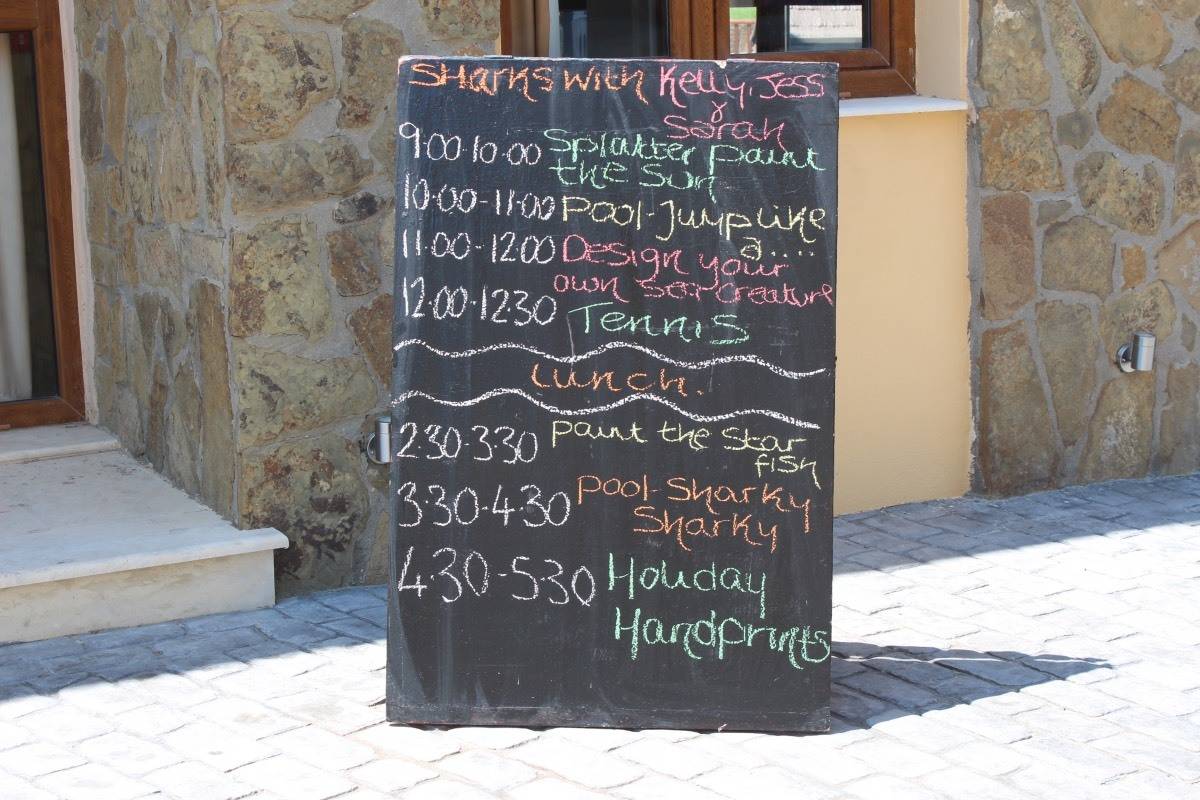 Sharks with Kelly, Jess
&
Sarah
9.00-10.00 Splatter paint
the Sun
10.00-11.00 Pool-Jump like
a....
11.00-12.00 Design your
own sea creature
12.00-12.30 Tennis
Lunch.
2.30-3.30 Paint the Star
fish
3.30-4.30 Pool-Sharky
Sharky
4.30-5.30 Holiday
Handprints